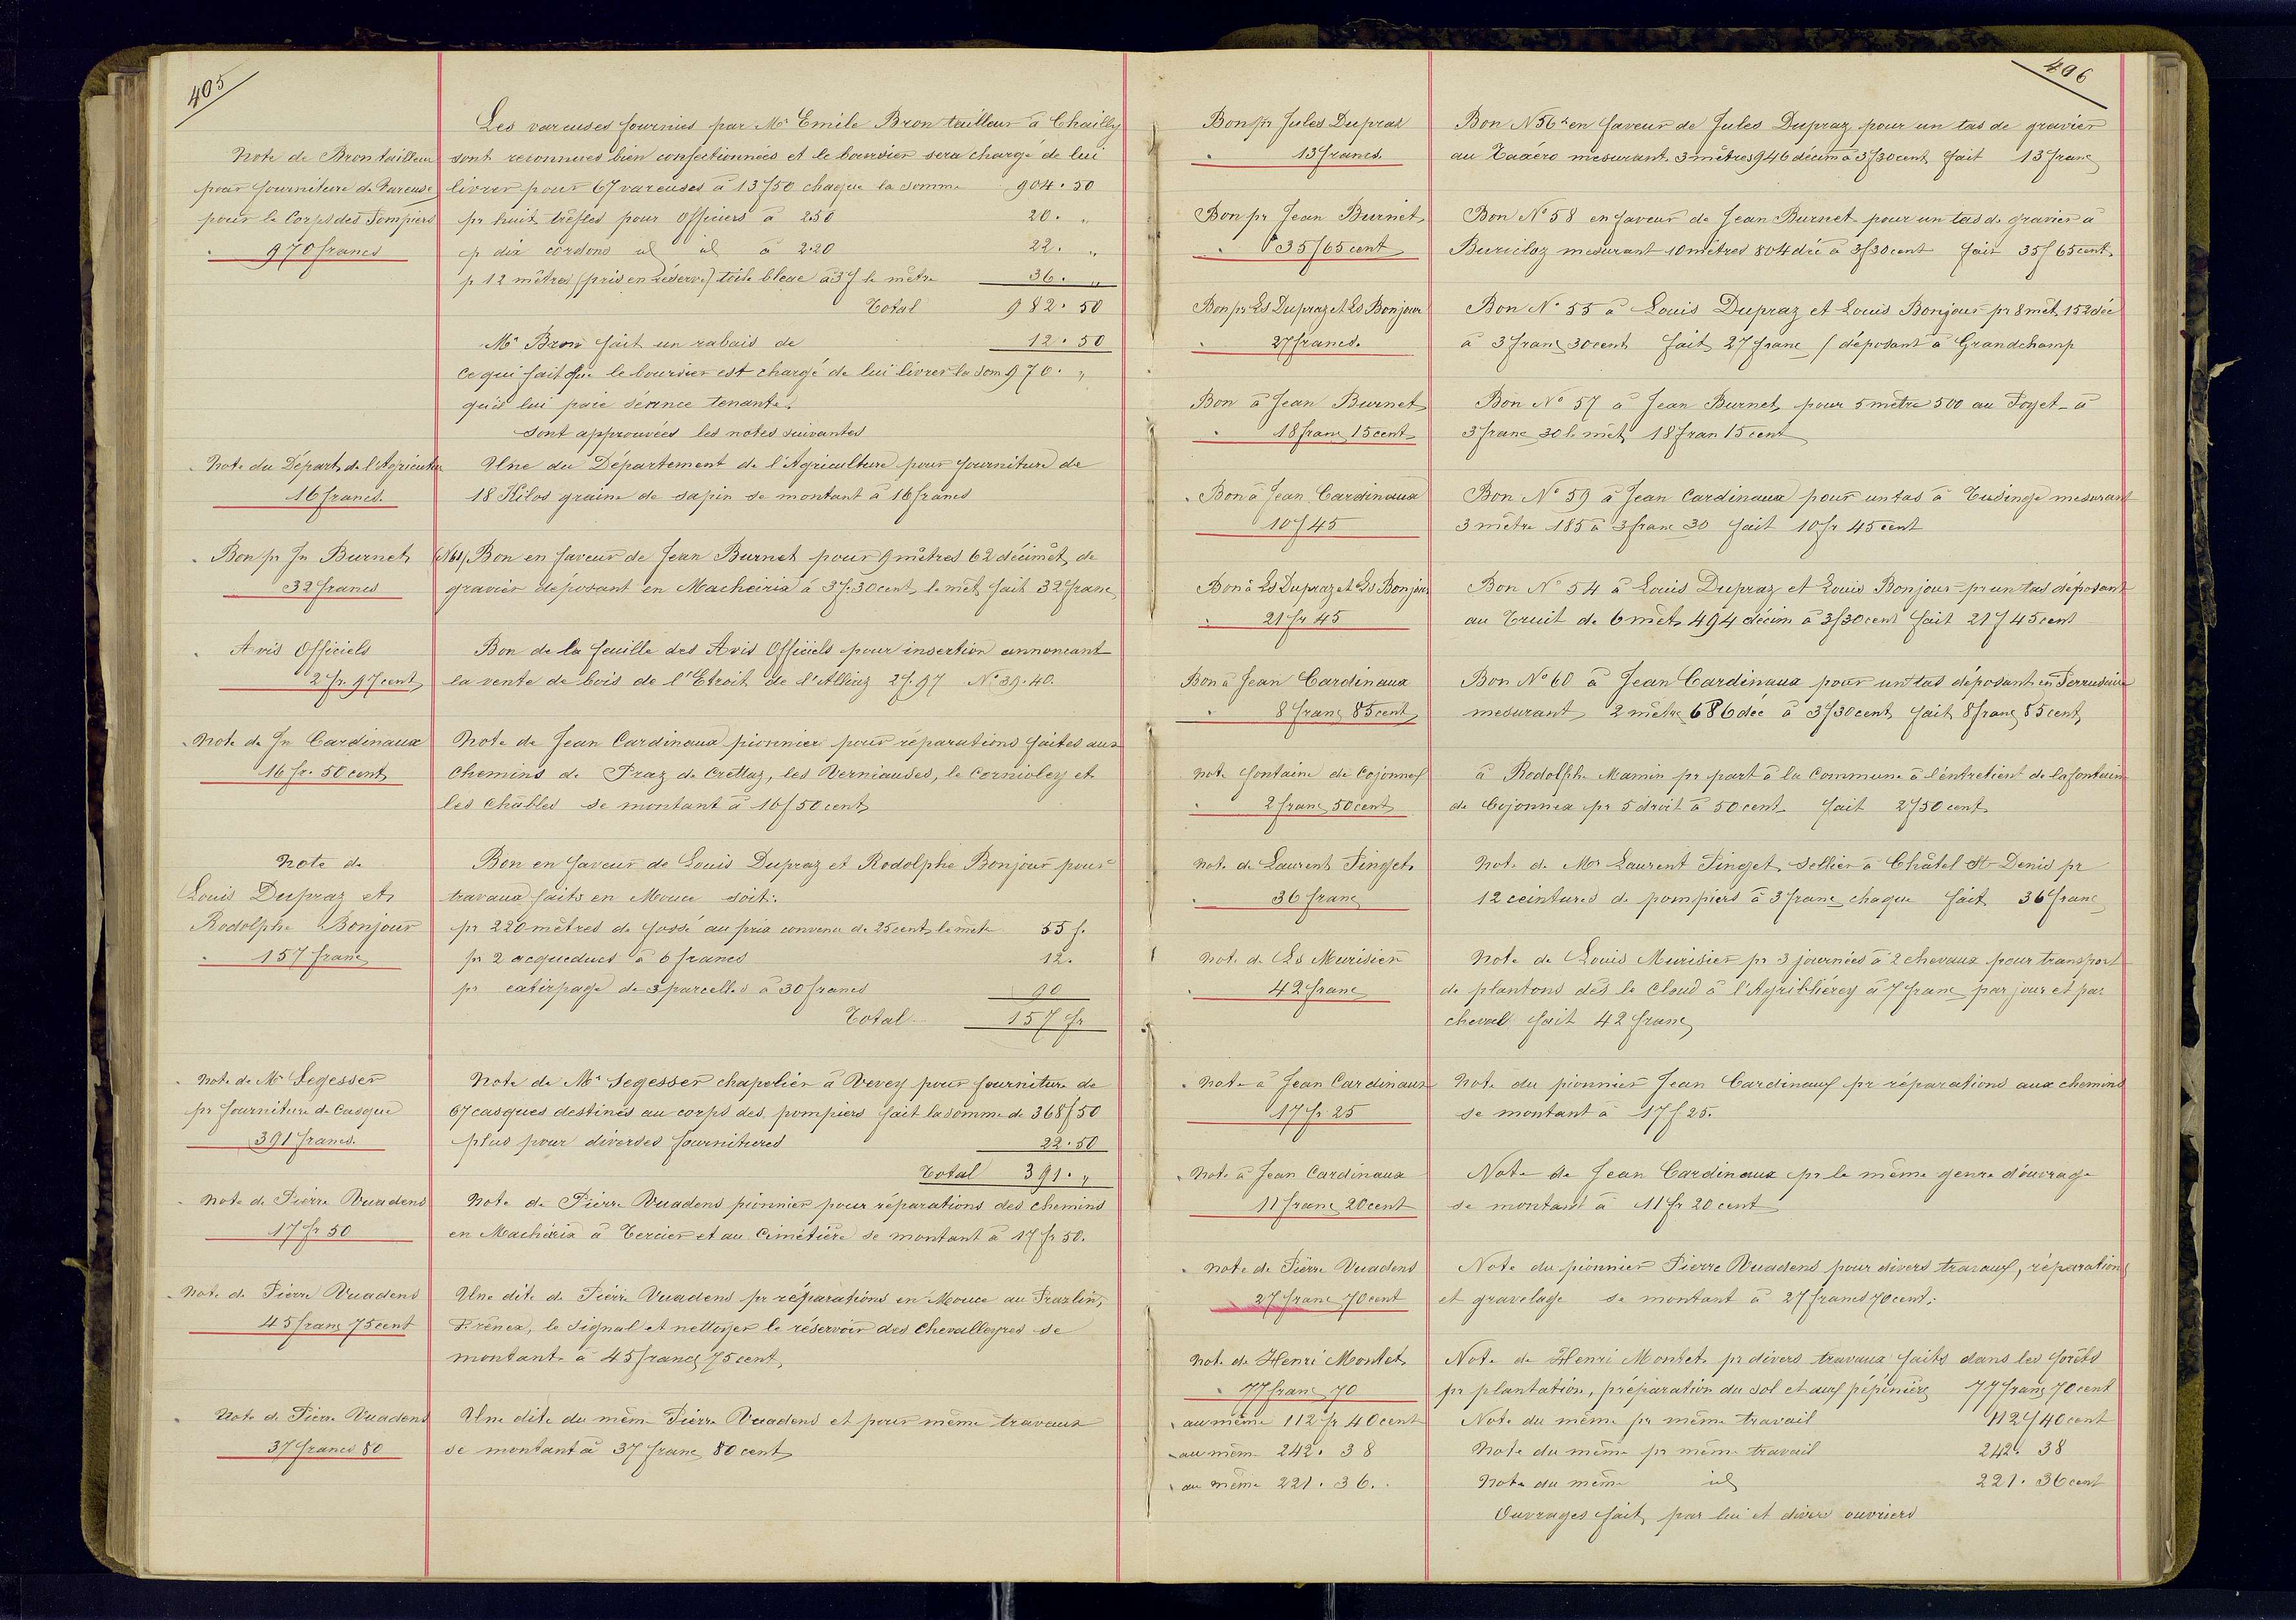 405
Les vareuses fournies par Mr Emile Bron tailleur à Chailly
Note de Bron tailleur
sont reconnues bien confectionnées et le boursier sera chargé de lui
pour fourniture de Vareuse
livrer pour 67 vareuses à 13f50 chaque la somme 904.50
pour le Corps des Pompiers
pr huit trèfles pour Officiers à 2.50 20. "
970 francs
p dix cordons id id à 2.20 22. "
p 12 mètres (pris en réserve) toile bleue à 3f le mètre 36. "
Total 982.50
Mr Bron fait un rabais de 12.50
Ce qui fait que le boursier est chargé de lui livrer la som 970. "
qu'il lui paie séance tenante.
Sont approuvées les notes suivantes
Note du Départ de l'Agricultu
Une du Département de l'Agriculture pour fourniture de
16 francs.
18 Kilos graine de sapin se montant à 16 francs
Bon pr Jn Burnet
(N61) Bon en faveur de Jean Burnet pour 9 mètres 62 décimèt de
32 francs
gravier déposant en Macheiria à 3f.30 cent le mèt fait 32 franc
Avis Officiels
Bon de la feuille des Avis Officiels pour insertion annoncant
2 fr. 97 cent
la vente de bois de l'Etroit de l'Alliaz 2f.97 No 39.40.
Note de Jn Cardinaux
Note de Jean Cardinaux pionnier pour réparations faites aux
16 fr. 50 cent
Chemins de Praz de Crettaz, les Verniaudes, le Corniolley et
les Châbles se montant à 16f50 cent
Note de
Bon en faveur de Louis Dupraz et Rodolphe Bonjour pour
Louis Dupraz et
travaux faits en Mouce soit:
Rodolphe Bonjour
pr 220 mètres de fossé au prix convenu de 25 cent le mètre 55 f.
157 franc
pr 2 acqueducs à 6 francs 12.
pr extirpage de 3 parcelles à 30 francs 90
Total 157 fr
Note de Mr Segesser
Note de Mr Segesser chapelier à Vevey pour fourniture de
pr fourniture de Casque
67 casques destinés au corps des pompiers fait la somme de 368f50
391 francs.
plus pour diverses fournitures 22.50
Total 391. "
Note de Pierre Vuadens
Note de Pierre Vuadens pionnier pour réparations des chemins
17 fr 50
en Macheiria à Tercier et au Cimetière se montant à 17 fr 50.
Note de Pierre Vuadens
Une dite de Pierre Vuadens pr réparations en Mouce au Prazlin,
45 franc 75 cent
Prênex, le Signal et nettoyer le réservoir des Chevalleyres se
montant à 45 francs 75 cent
Note de Pierre Vuadens
Une dite du même Pierre Vuadens et pour même travaux
37 francs 80
se montant à 37 franc 80 cent
406
Bon pr Jules Dupraz
Bon N 56 en faveur de Jules Dupraz pour un tas de gravier
13 francs.
au mesurant 3 mètres 946 décim à 3f30 cent fait 13 franc
Bon pr Jean Burnet
Bon No 58 en faveur de Jean Burnet pour un tas de gravier à
35f65 cent
Buricloz mesurant 10 mètres 804 déc à 3f30 cent fait 35f65 cent.
Bon pr Ls Dupraz et Ls Bonjour
Bon No 55 à Louis Dupraz et Louis Bonjour pr 8 mèt 152 déc
27 francs.
à 3 franc 30 cent fait 27 franc (déposant à Grandchamp
Bon à Jean Burnet
Bon No 57 à Jean Burnet pour 5 mètre 500 au Foyet à
18 franc 15 cent
3 franc 30 le mèt 18 fran 15 cent
Bon à Jean Cardinaux
Bon No 59 à Jean Cardinaux pour un tas à Tusinge mesurant
10f45
3 mètre 185 à 3 franc 30 fait 10 fr 45 cent
Bon à Ls Dupraz et Ls Bonjour
Bon No 54 à Louis Dupraz et Louis Bonjour pr un tas déposant
21 fr 45
au Truit de 6 mèt 494 décim à 3f30 cent fait 21f45 cent
Bon à Jean Cardinaux
Bon No 60 à Jean Cardinaux pour un tas déposant en
8 franc 85 cent
mesurant 2 mètre 686 déc à 3f30 cent fait 8 franc 85 cent
Note fontaine de Cojonnex
à Rodolphe Mamin pr part à la Commune à l'entretient de la fontaine
2 franc 50 cent
de Cojonnex pr 5 droit à 50 cent fait 2f50 cent
Note de Laurent Pinget
Note de Mr Laurent Pinget Sellier à Châtel St Denis pr
36 franc
12 ceintures de pompiers à 3 franc chaque fait 36 franc
Note de Ls Murisier
Note de Louis Murisier pr 3 journées à 2 chevaux pour transport
42 franc
de plantons dès le Claud à l'Agriblierey à 7 franc par jour et par
cheval fait 42 franc
Note à Jean Cardinaux
Note du pionnier Jean Cardinaux pr réparations aux chemins
17 fr 25
se montant à 17f25.
Note à Jean Cardinaux
Note de Jean Cardinaux pr le même genre d'ouvrage
11 franc 20 cent
se montant à 11 fr 20 cent
Note de Pierre Vuadens
Note du pionnier Pierre Vuadens pour divers travaux, réparations
27 franc 70 cent
et gravelage se montant à 27 francs 70 cent.
Note de Henri Montet
Note de Henri Montet pr divers travaux faits dans les forêts
77 franc 70
pr plantation, préparation du sol et aux pépinières 77 franc 70 cent
au même 112 fr 40 cent
Note du même pr même travail 112f40 cent
au même 242.38
Note du même pr même travail 242.38
au même 221.36.
Note du même id 221.36 cent
Ouvrages fait par lui et divers ouvriers